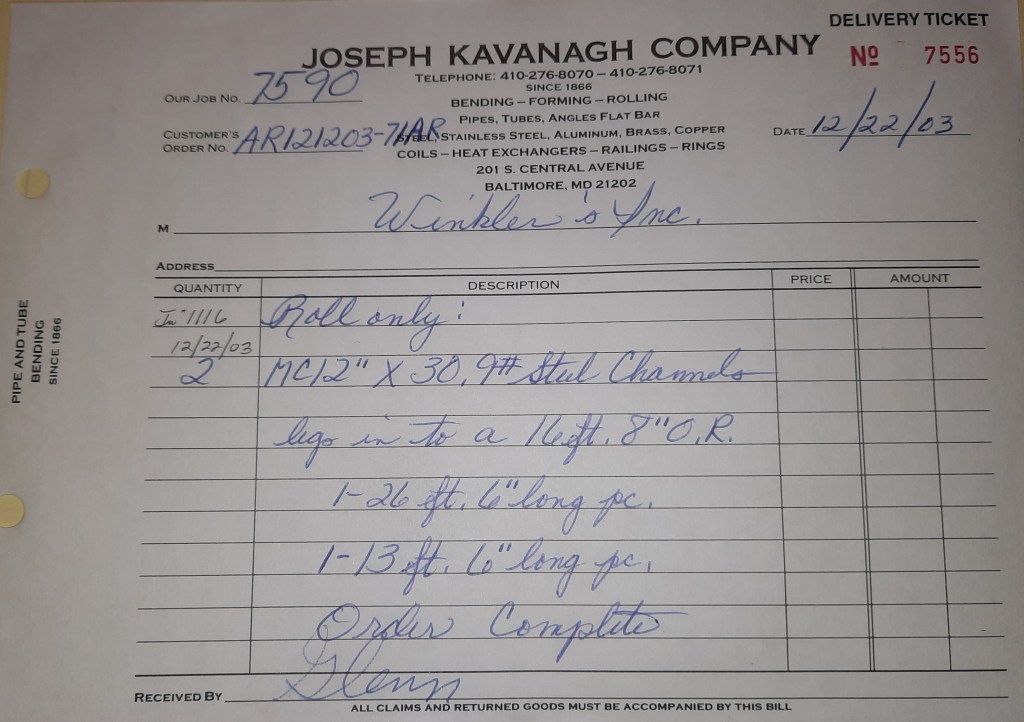 DELIVERY TICKET
JOSEPH KAVANAGH COMPANY
No 7556
TELEPHONE: 410-276-8070 – 410-276-8071
SINCE 1866
OUR JOB NO. 7590
BENDING – FORMING – ROLLING
PIPES, TUBES, ANGLES FLAT BAR
CUSTOMER'S ORDER NO. AR121203-71AR
STEEL, STAINLESS STEEL, ALUMINUM, BRASS, COPPER
DATE 12/22/03
COILS – HEAT EXCHANGERS – RAILINGS – RINGS
201 S. CENTRAL AVENUE
BALTIMORE, MD 21202
M Winkler's Inc.
ADDRESS
QUANTITY DESCRIPTION PRICE AMOUNT
In# 1116 Roll only:
12/22/03
2 MC12" X 30.9# Steel Channels
legs in to a 16ft. 8" O.R.
1-26 ft. 6" long pc.
1-13 ft. 6" long pc.
Order Complete
RECEIVED BY Glenn
ALL CLAIMS AND RETURNED GOODS MUST BE ACCOMPANIED BY THIS BILL
PIPE AND TUBE
BENDING
SINCE 1866